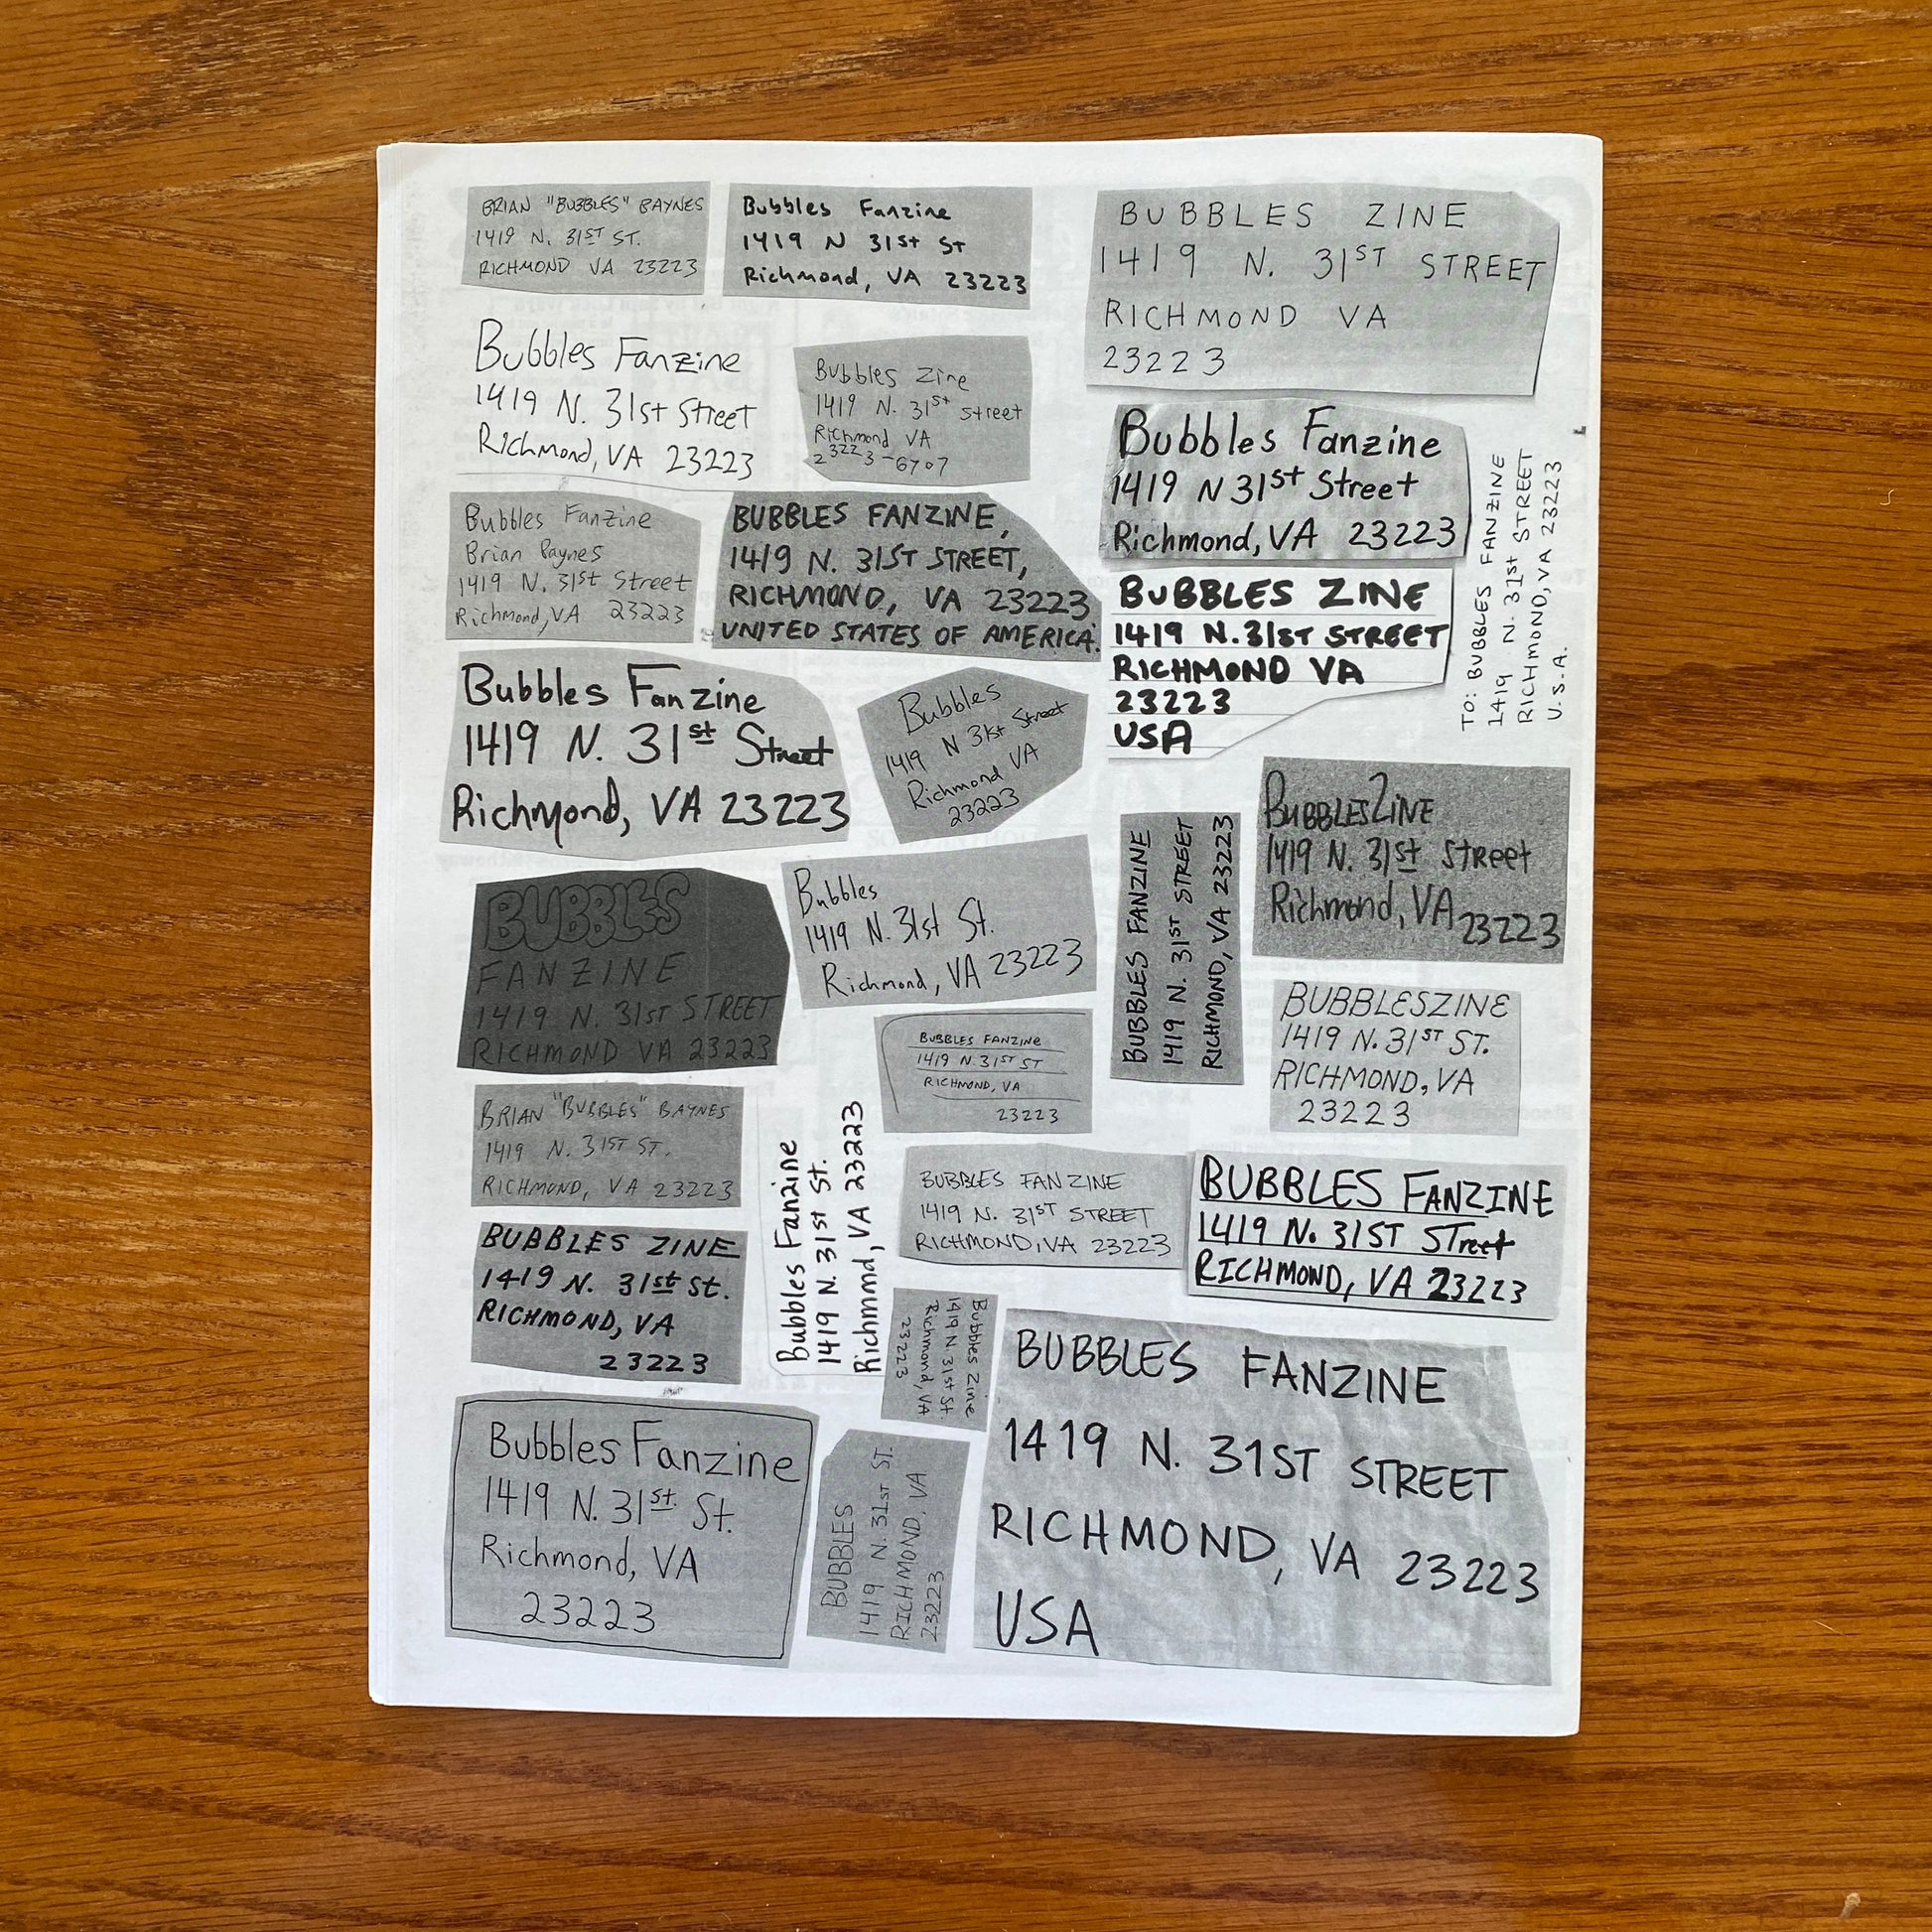 BRIAN "BUBBLES" BAYNES
1419 N. 31ST ST.
RICHMOND VA 23223
Bubbles Fanzine
1419 N 31st St
Richmond, VA 23223
BUBBLES ZINE
1419 N. 31ST STREET
RICHMOND VA
23223
Bubbles Fanzine
1419 N. 31st Street
Richmond, VA 23223
Bubbles Zine
1419 N. 31st Street
Richmond VA
23223-6707
Bubbles Fanzine
1419 N 31st Street
Richmond, VA 23223
TO: BUBBLES FANZINE
1419 N. 31st STREET
RICHMOND, VA 23223
U.S.A.
Bubbles Fanzine
Brian Baynes
1419 N. 31st Street
Richmond, VA 23223
BUBBLES FANZINE,
1419 N. 31ST STREET,
RICHMOND, VA 23223
UNITED STATES OF AMERICA.
BUBBLES ZINE
1419 N. 31ST STREET
RICHMOND VA
23223
USA
Bubbles Fanzine
1419 N. 31st Street
Richmond, VA 23223
Bubbles
1419 N 31st Street
Richmond VA
23223
BUBBLES FANZINE
1419 N. 31ST STREET
RICHMOND, VA 23223
BUBBLES ZINE
1419 N. 31st Street
Richmond, VA 23223
BUBBLES
FANZINE
1419 N. 31ST STREET
RICHMOND VA 23223
Bubbles
1419 N. 31st St.
Richmond, VA 23223
BUBBLES FANZINE
1419 N. 31ST ST
RICHMOND, VA
23223
BUBBLESZINE
1419 N. 31ST ST.
RICHMOND, VA
23223
BRIAN "BUBBLES" BAYNES
1419 N. 31ST ST.
RICHMOND, VA 23223
Bubbles Fanzine
1419 N. 31st St.
Richmond, VA 23223
BUBBLES FANZINE
1419 N. 31ST STREET
RICHMOND, VA 23223
BUBBLES FANZINE
1419 N. 31ST STreet
RICHMOND, VA 23223
BUBBLES ZINE
1419 N. 31st St.
RICHMOND, VA
23223
Bubbles Zine
1419 N. 31st St.
Richmond, VA
23223
BUBBLES FANZINE
1419 N. 31ST STREET
RICHMOND, VA 23223
USA
Bubbles Fanzine
1419 N. 31st. St.
Richmond, VA
23223
BUBBLES
1419 N. 31ST ST.
RICHMOND, VA
23223